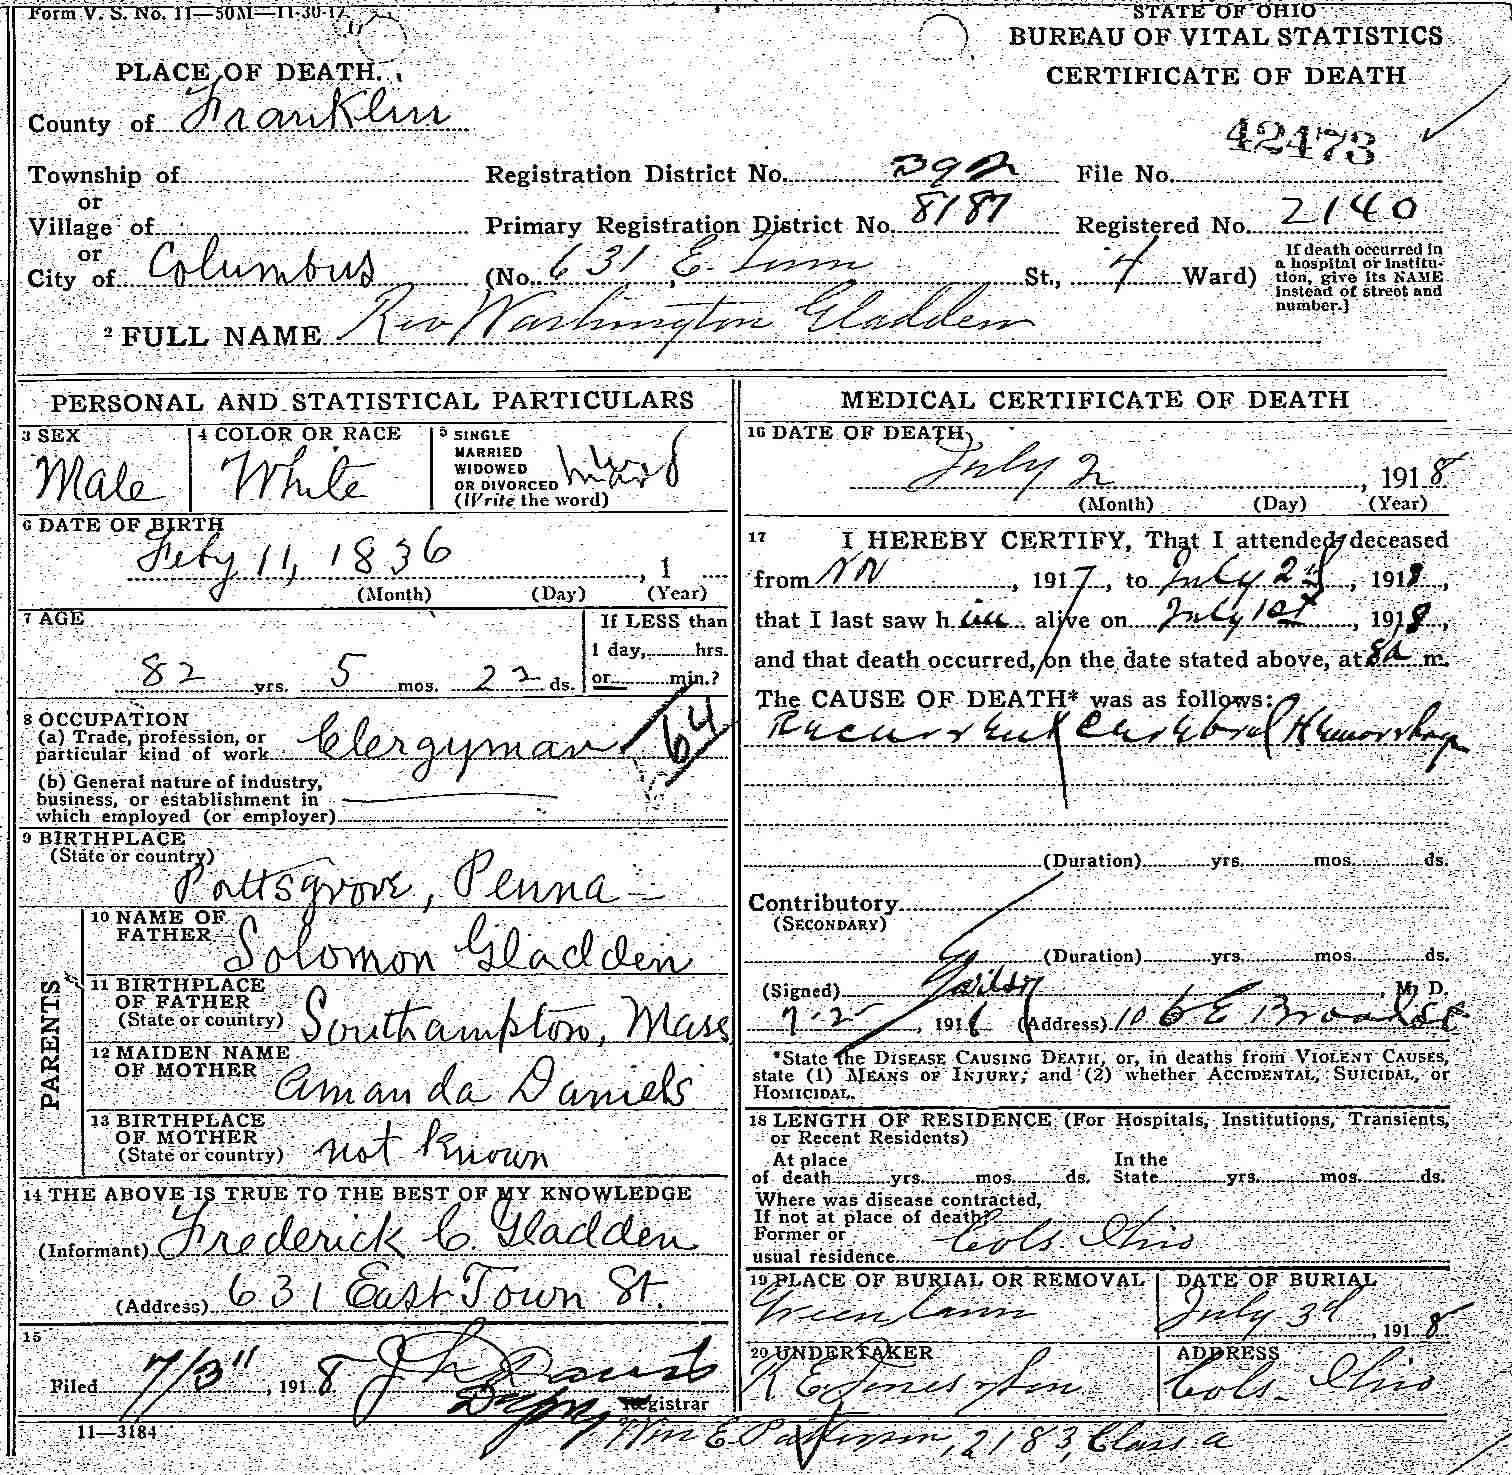 Form V. S. No. 11—50M—11-30-17
STATE OF OHIO
BUREAU OF VITAL STATISTICS
CERTIFICATE OF DEATH
PLACE OF DEATH.
County of Franklin
42473
Township of Registration District No. 392 File No.
or
Village of Primary Registration District No. 8187 Registered No. 2140
or
City of Columbus (No. 631 E. Town St., 4 Ward)
If death occurred in
a hospital or institu-
tion, give its NAME
instead of street and
number.]
2 FULL NAME Rev Washington Gladden
PERSONAL AND STATISTICAL PARTICULARS
3 SEX
Male
4 COLOR OR RACE
White
5 SINGLE
MARRIED
WIDOWED
OR DIVORCED
(Write the word)
6 DATE OF BIRTH
Feby 11, 1836, 1
(Month) (Day) (Year)
7 AGE
82 yrs. 5 mos. 22 ds.
If LESS than
1 day, hrs.
or min.?
8 OCCUPATION
(a) Trade, profession, or
particular kind of work Clergyman
64
(b) General nature of industry,
business, or establishment in
which employed (or employer)
9 BIRTHPLACE
(State or country)
Pottsgrove, Penna
PARENTS
10 NAME OF
FATHER
Solomon Gladden
11 BIRTHPLACE
OF FATHER
(State or country)
Southampton, Mass
12 MAIDEN NAME
OF MOTHER
Amanda Daniels
13 BIRTHPLACE
OF MOTHER
(State or country)
not known
14 THE ABOVE IS TRUE TO THE BEST OF MY KNOWLEDGE
(Informant) Frederick C. Gladden
(Address) 631 East Town St.
15
Filed 7/3, 1918
Depy Registrar
11—3184
MEDICAL CERTIFICATE OF DEATH
16 DATE OF DEATH
July 2, 1918
(Month) (Day) (Year)
17 I HEREBY CERTIFY, That I attended deceased
from, 1917, to July 2d, 1918,
that I last saw him alive on July 1st, 1918,
and that death occurred, on the date stated above, at 8a m.
The CAUSE OF DEATH* was as follows:
Recurrent Cerebral Hemorrhage
(Duration) yrs. mos. ds.
Contributory
(SECONDARY)
(Duration) yrs. mos. ds.
(Signed) M. D.
7-2, 191 (Address) 106 E Broad St
*State the DISEASE CAUSING DEATH, or, in deaths from VIOLENT CAUSES,
state (1) MEANS OF INJURY; and (2) whether ACCIDENTAL, SUICIDAL, or
HOMICIDAL.
18 LENGTH OF RESIDENCE (For Hospitals, Institutions, Transients,
or Recent Residents)
At place
of death yrs. mos. ds.
In the
State yrs. mos. ds.
Where was disease contracted,
If not at place of death?
Former or
usual residence Cols. Ohio
19 PLACE OF BURIAL OR REMOVAL
Green Lawn
DATE OF BURIAL
July 3d, 1918
20 UNDERTAKER
R E Jones & Son
ADDRESS
Cols. Ohio
Wm E. Patterson, 2183, Class A